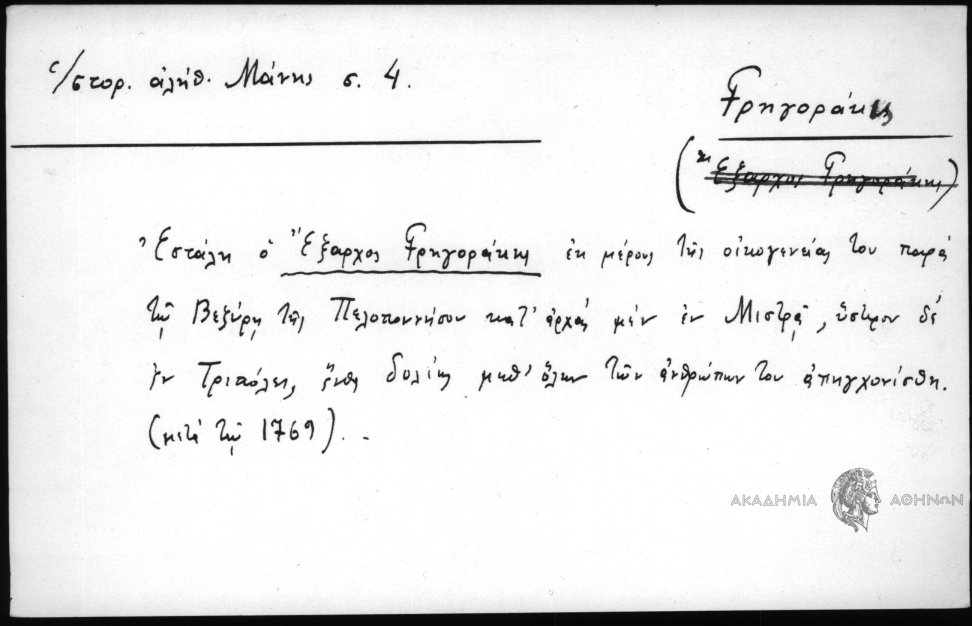 Ἱστορ. ἀλήθ. Μάνης σ. 4.
Γρηγοράκης
(Ἔξαρχος Γρηγοράκης)
Ἐστάλη ὁ Ἔξαρχος Γρηγοράκης ἐκ μέρους τῆς οἰκογενείας του παρά
τῷ Βεζύρῃ τῆς Πελοποννήσου κατ' ἀρχάς μέν ἐν Μιστρᾷ, ὕστερον δέ
ἐν Τριπόλει, ἔνθα δολίως μεθ' ὅλων τῶν ἀνθρώπων του ἀπηγχονίσθη.
(μετά τῷ 1769). -
ΑΚΑΔΗΜΙΑ ΑΘΗΝΩΝ